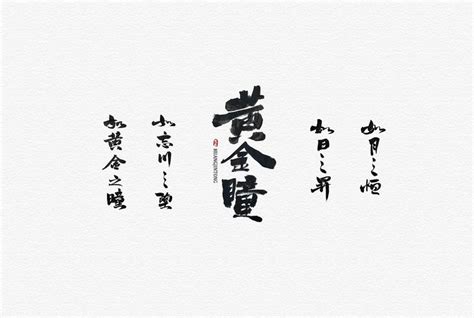 如月之恒
如日之昇
黄金瞳
HUANGJINTONG
如忘川之
如黄金之瞳